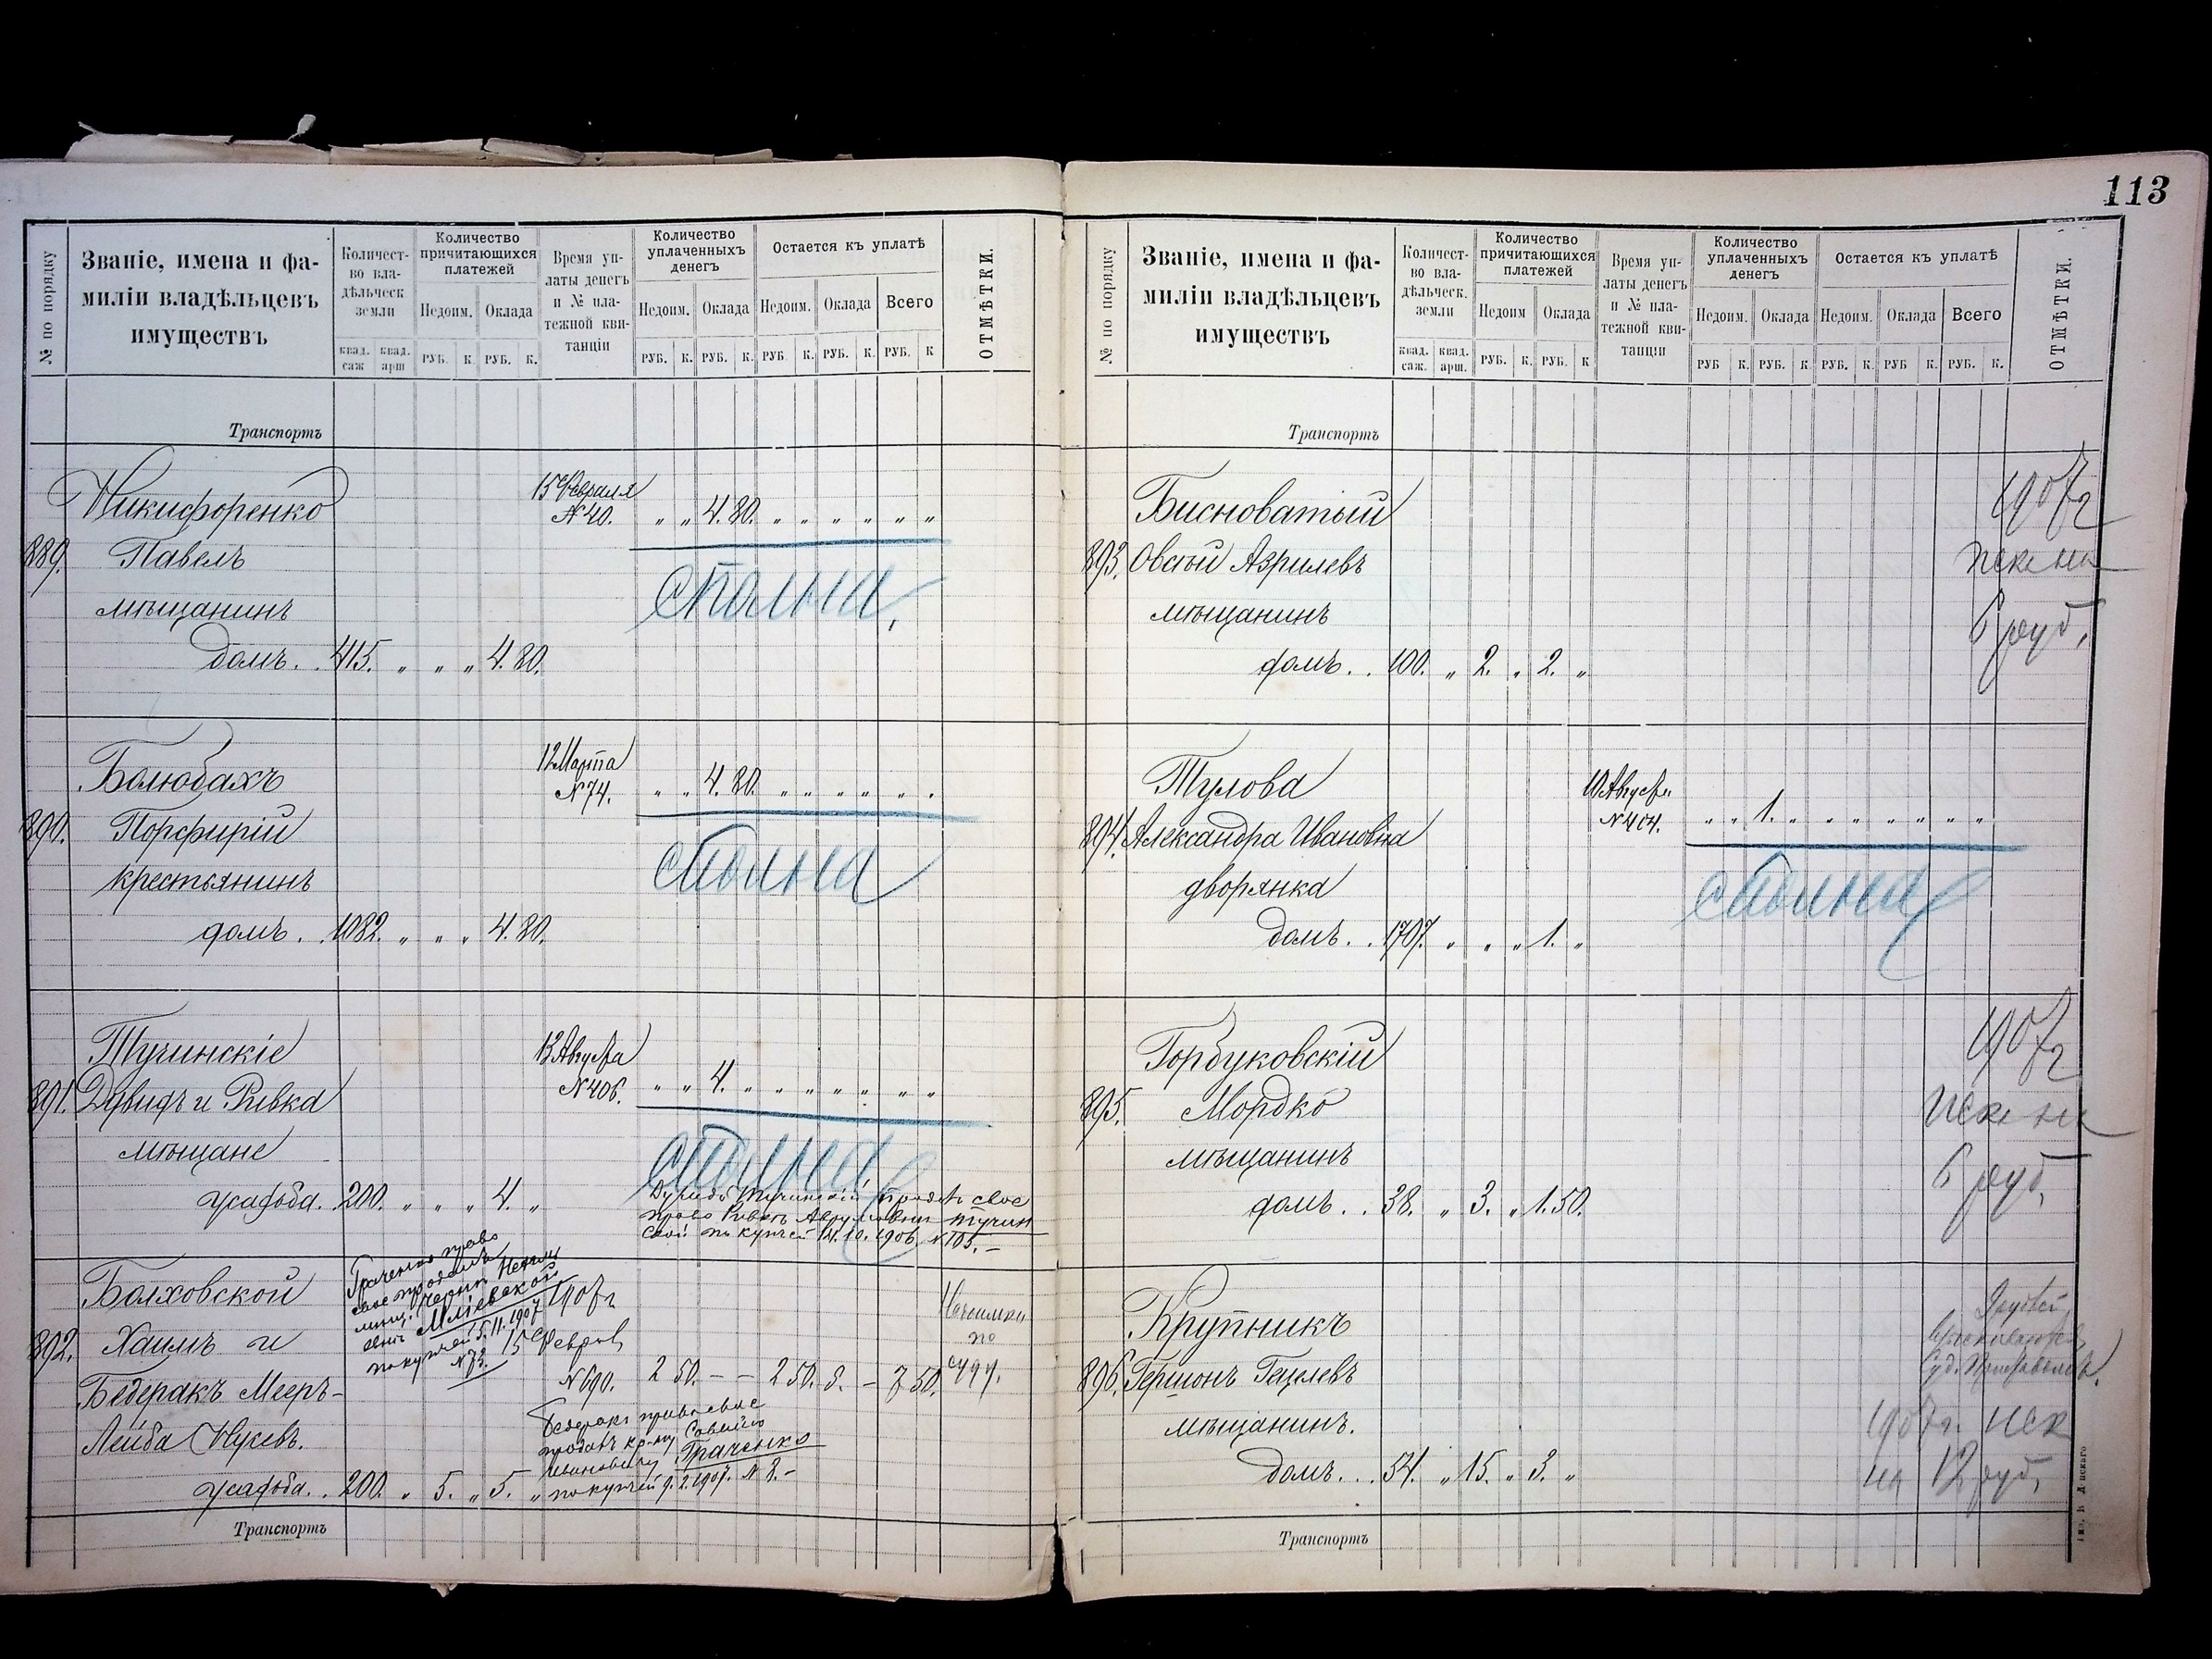 113
№ по порядку
Званіе, имена и фа-
миліи владѣльцевъ
имуществъ
Количест-
во вла-
дѣльческ
земли
квад. саж
квад. арш
Количество
причитающихся
платежей
Недоим. Оклада
РУБ. К. РУБ. К.
Время уп-
латы денегъ
и № пла-
тежной кви-
танціи
Количество
уплаченныхъ
денегъ
Недоим. Оклада
РУБ. К. РУБ. К.
Остается къ уплатѣ
Недоим. Оклада Всего
РУБ К. РУБ. К. РУБ. К
ОТМѢТКИ.
Транспортъ
Никифоренко
889. Павелъ
мѣщанинъ
домъ. . 415. „ „ „ 4. 80.
15 Февраля
№ 40. „ „ 4. 80. „ „ „ „ „ „
сполна,
Болюбахъ
890. Порфирій
крестьянинъ
домъ. . 1082. „ „ „ 4. 80.
12 Марта
№ 74. „ „ 4. 80. „ „ „ „ „ „
сполна
Тучинскіе
891. Давидъ и Ривка
мѣщане
усадьба. 200. „ „ „ 4. „
13 Августа
№ 406. „ „ 4. „ „ „ „ „ „ „
сполна
Тучинскій продалъ свое
право Ривкѣ Тучин
ской по купчей 14.10.1906. № 105.–
Болховской
892. Хаимъ и
Бедеракъ Мееръ-
Лейба Нухевъ.
усадьба. . 200. „ 5. „ 5. „
Граченко право
свое продалъ
Мліевской
по купчей 5.11.1907
№ 73.
1907 г
15 Феврал
№ 690. 2 50. – – 2 50. 5. – 7 50.
по
Бедеракъ право свое
продалъ кр-ну Савелію
Ивановичу Граченко
по купчей 9.2.1907. № 8.–
Транспортъ
№ по порядку
Званіе, имена и фа-
миліи владѣльцевъ
имуществъ
Количест-
во вла-
дѣльческ.
земли
квад. саж.
квад. арш.
Количество
причитающихся
платежей
Недоим Оклада
РУБ. К. РУБ. К
Время уп-
латы денегъ
и № пла-
тежной кви-
танціи
Количество
уплаченныхъ
денегъ
Недоим. Оклада
РУБ К. РУБ. К.
Остается къ уплатѣ
Недоим. Оклада Всего
РУБ. К. РУБ К. РУБ. К.
ОТМѢТКИ.
Транспортъ
Бисноватый
893. Овсѣй Азрилевъ
мѣщанинъ
домъ. . 100. „ 2. „ 2. „
1907 г
иск на
6 руб.
Тулова
894. Александра Ивановна
дворянка
домъ. . 1707. „ „ „ 1. „
10 Августа
№ 404. „ „ 1. „ „ „ „ „ „ „
сполна
Горбуковскій
895. Мордко
мѣщанинъ
домъ. . 38. „ 3. „ 1. 50.
1907 г
иск на
6 руб.
Крупникъ
896. Гершонъ Гецелевъ
мѣщанинъ.
домъ. . . 54. „ 15. „ 3. „
1907 г. иск
на 12 руб.
Транспортъ